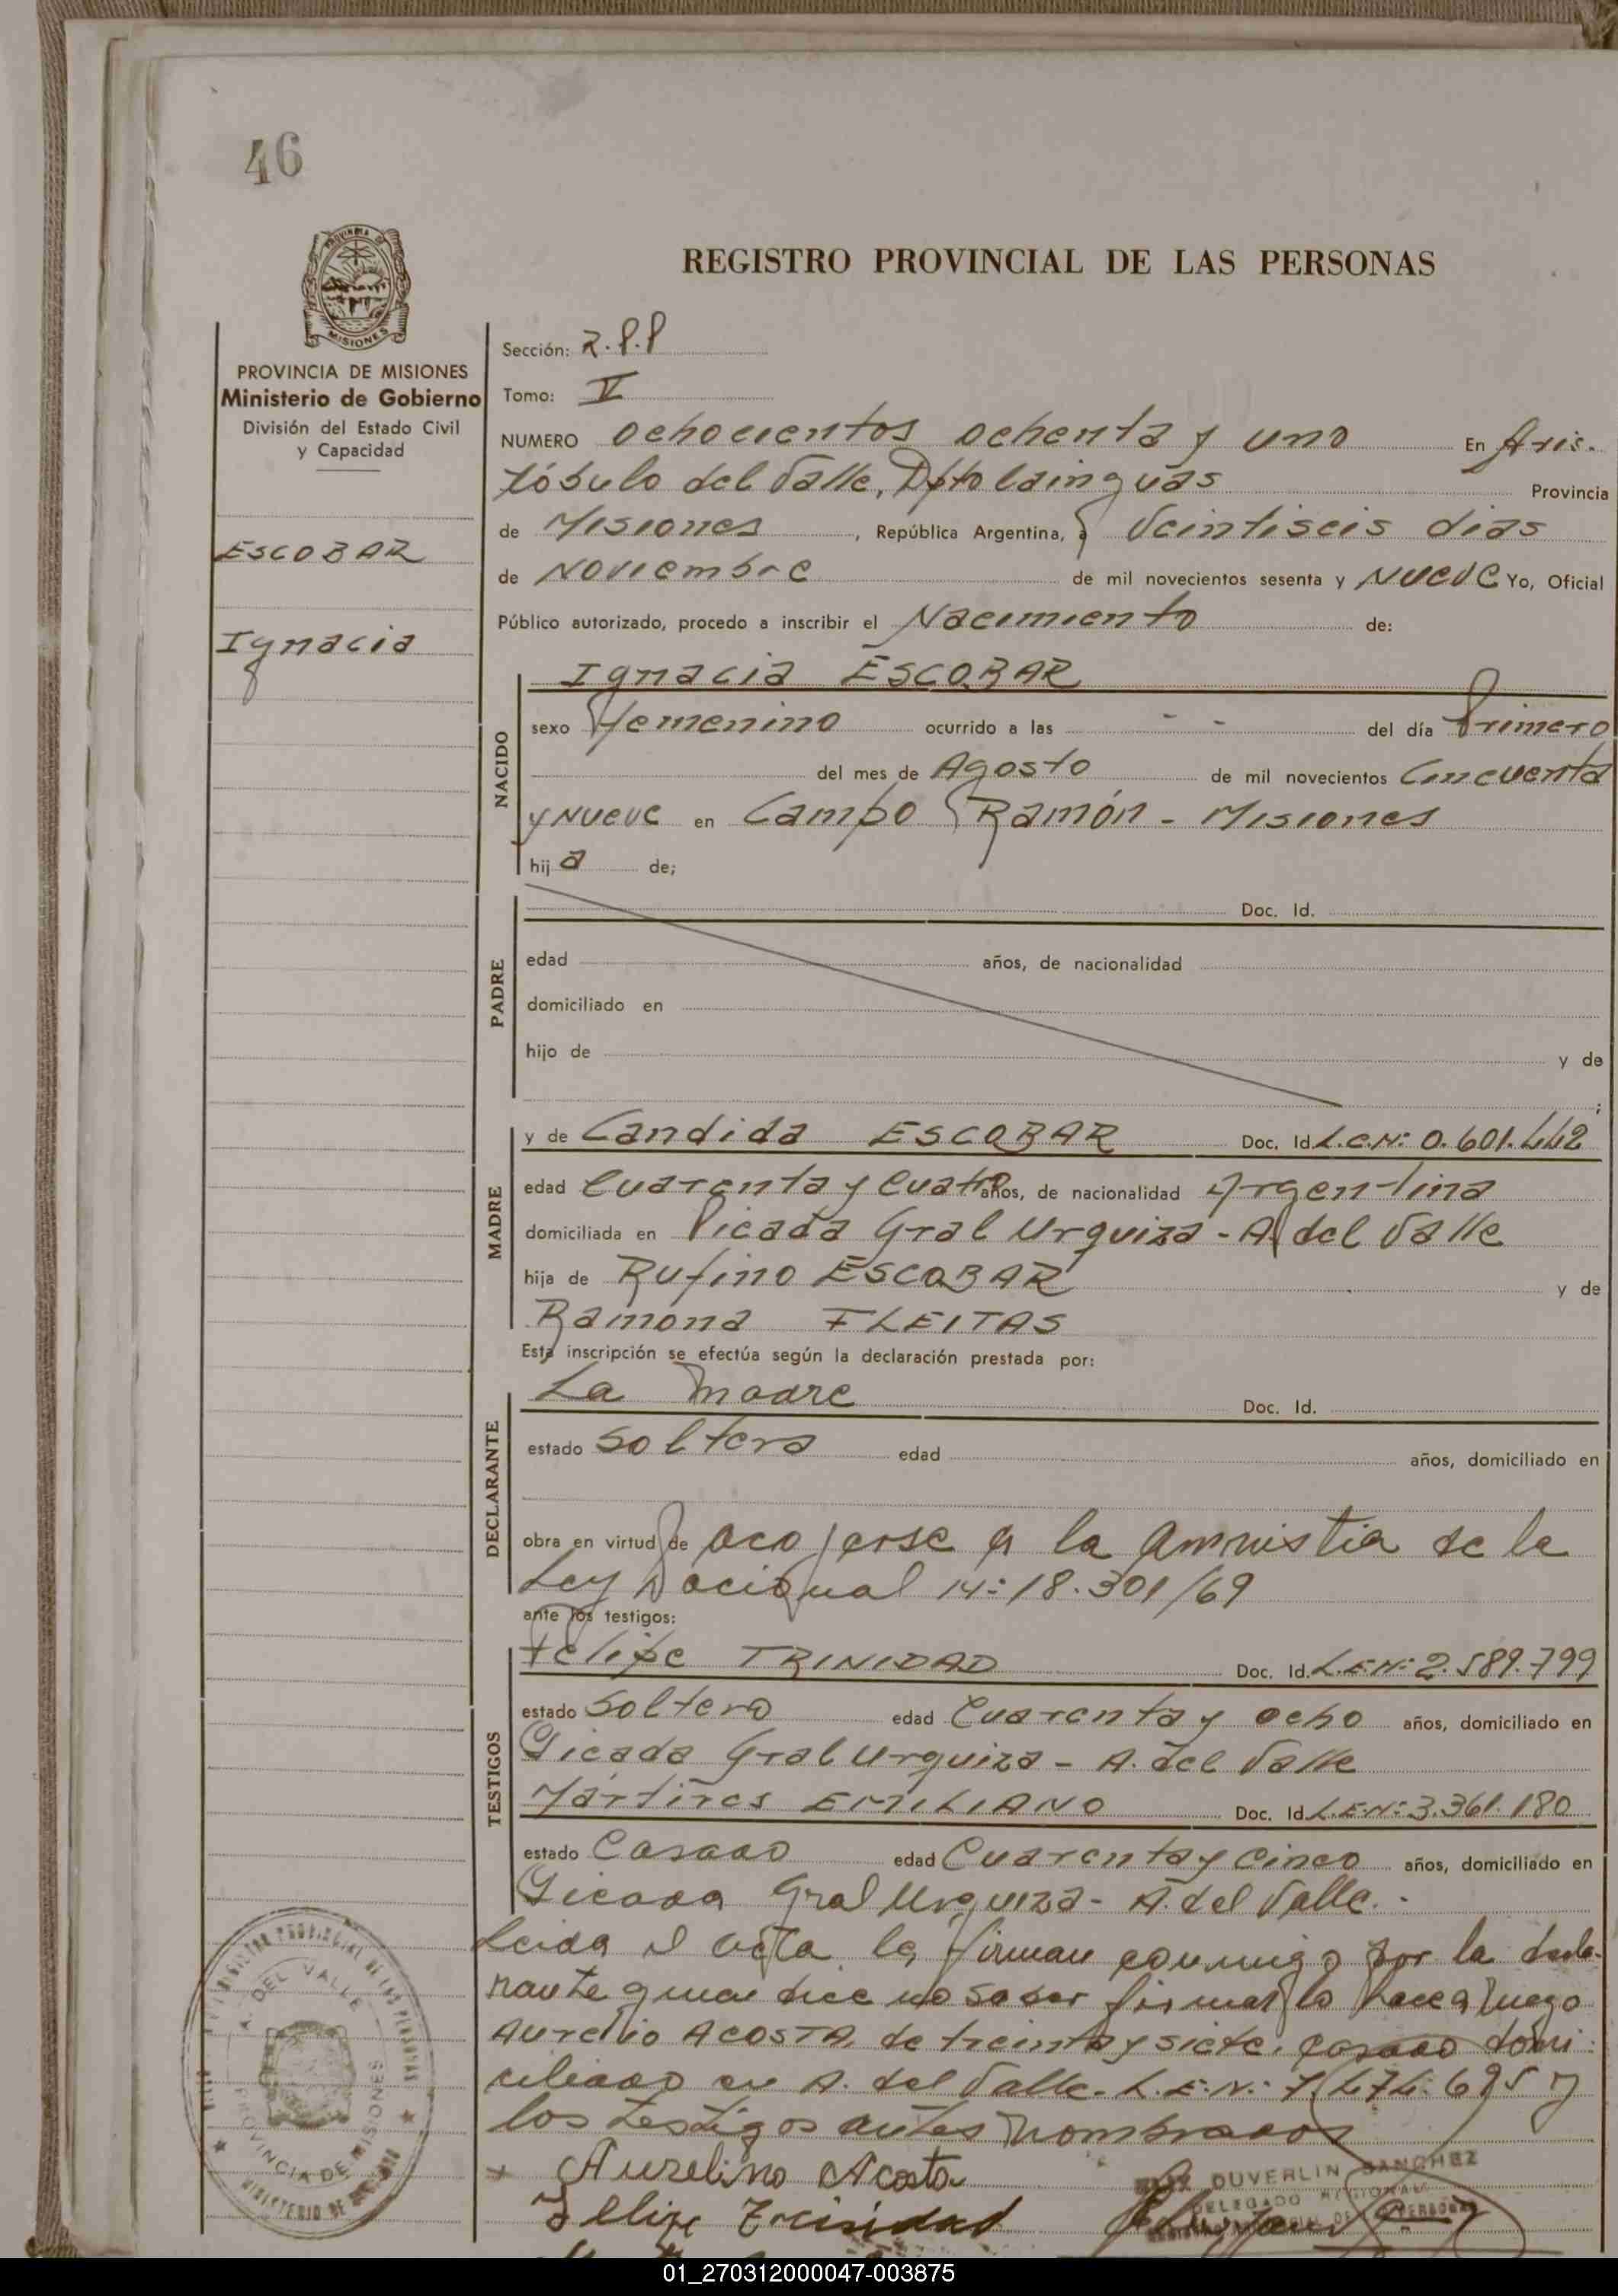 46
REGISTRO PROVINCIAL DE LAS PERSONAS
PROVINCIA DE MISIONES
Ministerio de Gobierno
División del Estado Civil
y Capacidad
ESCOBAR
Ignacia
Sección: R.P.P
Tomo: V
NUMERO ochocientos ochenta y uno En Aris-
tóbulo del Valle, Dpto Cainguas Provincia
de Misiones, República Argentina, a Veintiseis dias
de Noviembre de mil novecientos sesenta y NUEVE Yo, Oficial
Público autorizado, procedo a inscribir el Nacimiento de:
NACIDO
Ignacia ESCOBAR
sexo Femenino ocurrido a las - - del día Primero
del mes de Agosto de mil novecientos Cincuenta
y NUEVE en Campo Ramón - Misiones
hija de;
PADRE
Doc. Id.
edad años, de nacionalidad
domiciliado en
hijo de y de
;
MADRE
y de Candida ESCOBAR Doc. Id. L.C.Nº: 0.601.442
edad Cuarenta y Cuatro años, de nacionalidad Argentina
domiciliada en Picada Gral Urquiza - A. del Valle
hija de Rufino ESCOBAR y de
Ramona FLEITAS
Esta inscripción se efectúa según la declaración prestada por:
DECLARANTE
La Madre Doc. Id.
estado Soltera edad años, domiciliado en
obra en virtud de acojerse a la Amnistia de la
Ley Nacional Nº: 18.301/69
ante los testigos:
TESTIGOS
Felipe TRINIDAD Doc. Id. L.E.Nº: 2.589.799
estado Soltero edad Cuarenta y ocho años, domiciliado en
Picada Gral Urquiza - A. del Valle
Mártires EMILIANO Doc. Id. L.E.Nº: 3.361.180
estado Casado edad Cuarenta y Cinco años, domiciliado en
Picada Gral Urquiza - A. del Valle.-
Leida el acta la firman conmigo por la decla-
rante quien dice no saber firmar lo hace a ruego
Aurelio ACOSTA, de treinta y siete, casado domi-
ciliado en A. del Valle. L.E.N.: 7.474.695 y
los testigos antes nombrados
Aurelino Acosta
Felipe Trinidad
DUVERLIN SANCHEZ
DELEGADO REGIONAL
A. DEL VALLE
PROVINCIA DE MISIONES
01_270312000047-003875